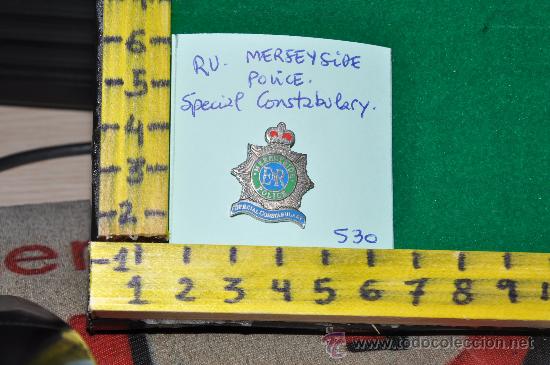 RU. MERSEYSIDE
POLICE.
Special Constabulary.
MERSEYSIDE
EIIR
POLICE
SPECIAL CONSTABULARY
530
6
5
4
3
2
1
1 2 3 4 5 6 7 8 9
er
www.todocoleccion.net